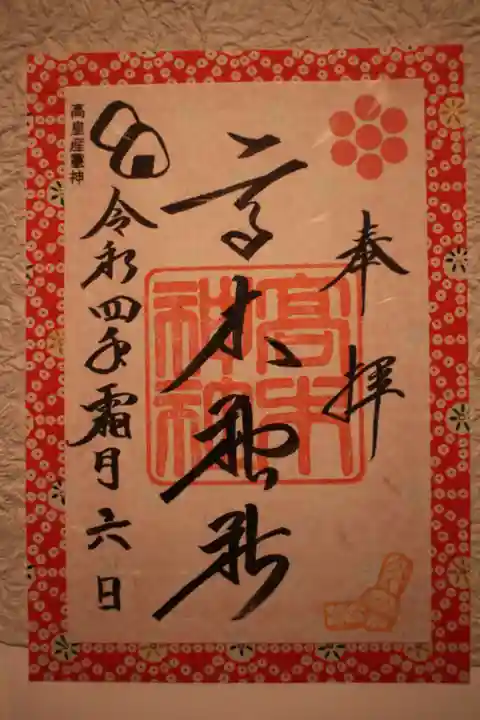 奉拝
高木神社
高木神社
令和四年霜月六日
高皇産靈神